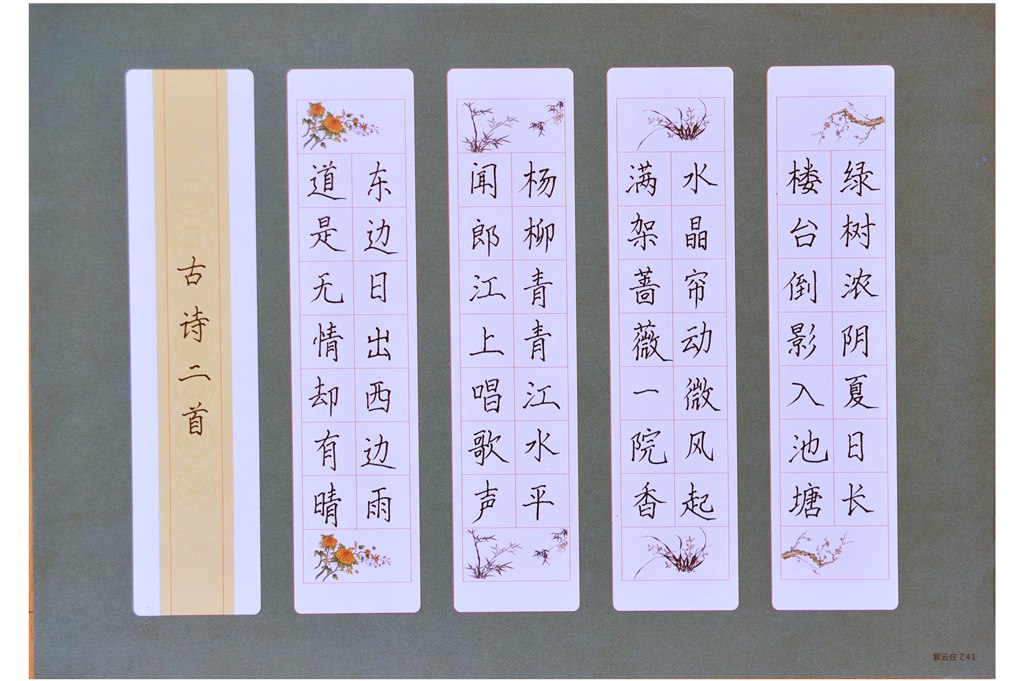 绿树浓阴夏日长
楼台倒影入池塘
水晶帘动微风起
满架蔷薇一院香
杨柳青青江水平
闻郎江上唱歌声
东边日出西边雨
道是无情却有晴
古诗二首
紫云庄 Z 41